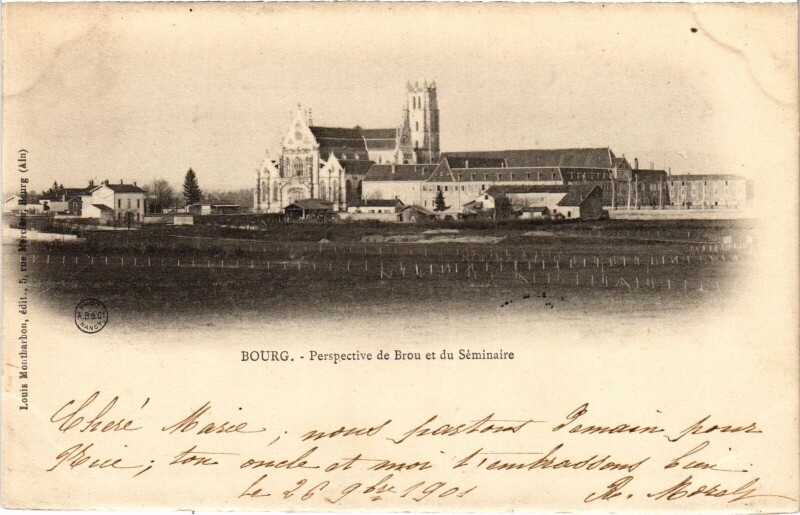 Louis Montbarbon, édit., 5, rue Mercier, Bourg (Ain)
A.B & Cie
NANCY
BOURG. - Perspective de Brou et du Séminaire
Cheré Marie, nous partons Demain pour
; ton oncle et moi t'embrassons bien.
le 26 9bre 1901